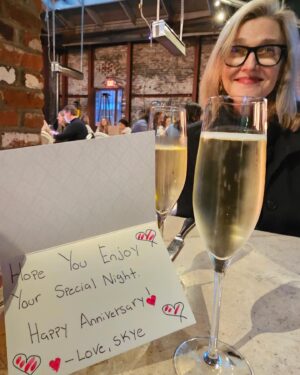 Hope You Enjoy
Your Special Night.
Happy Anniversary!
-Love, Skye